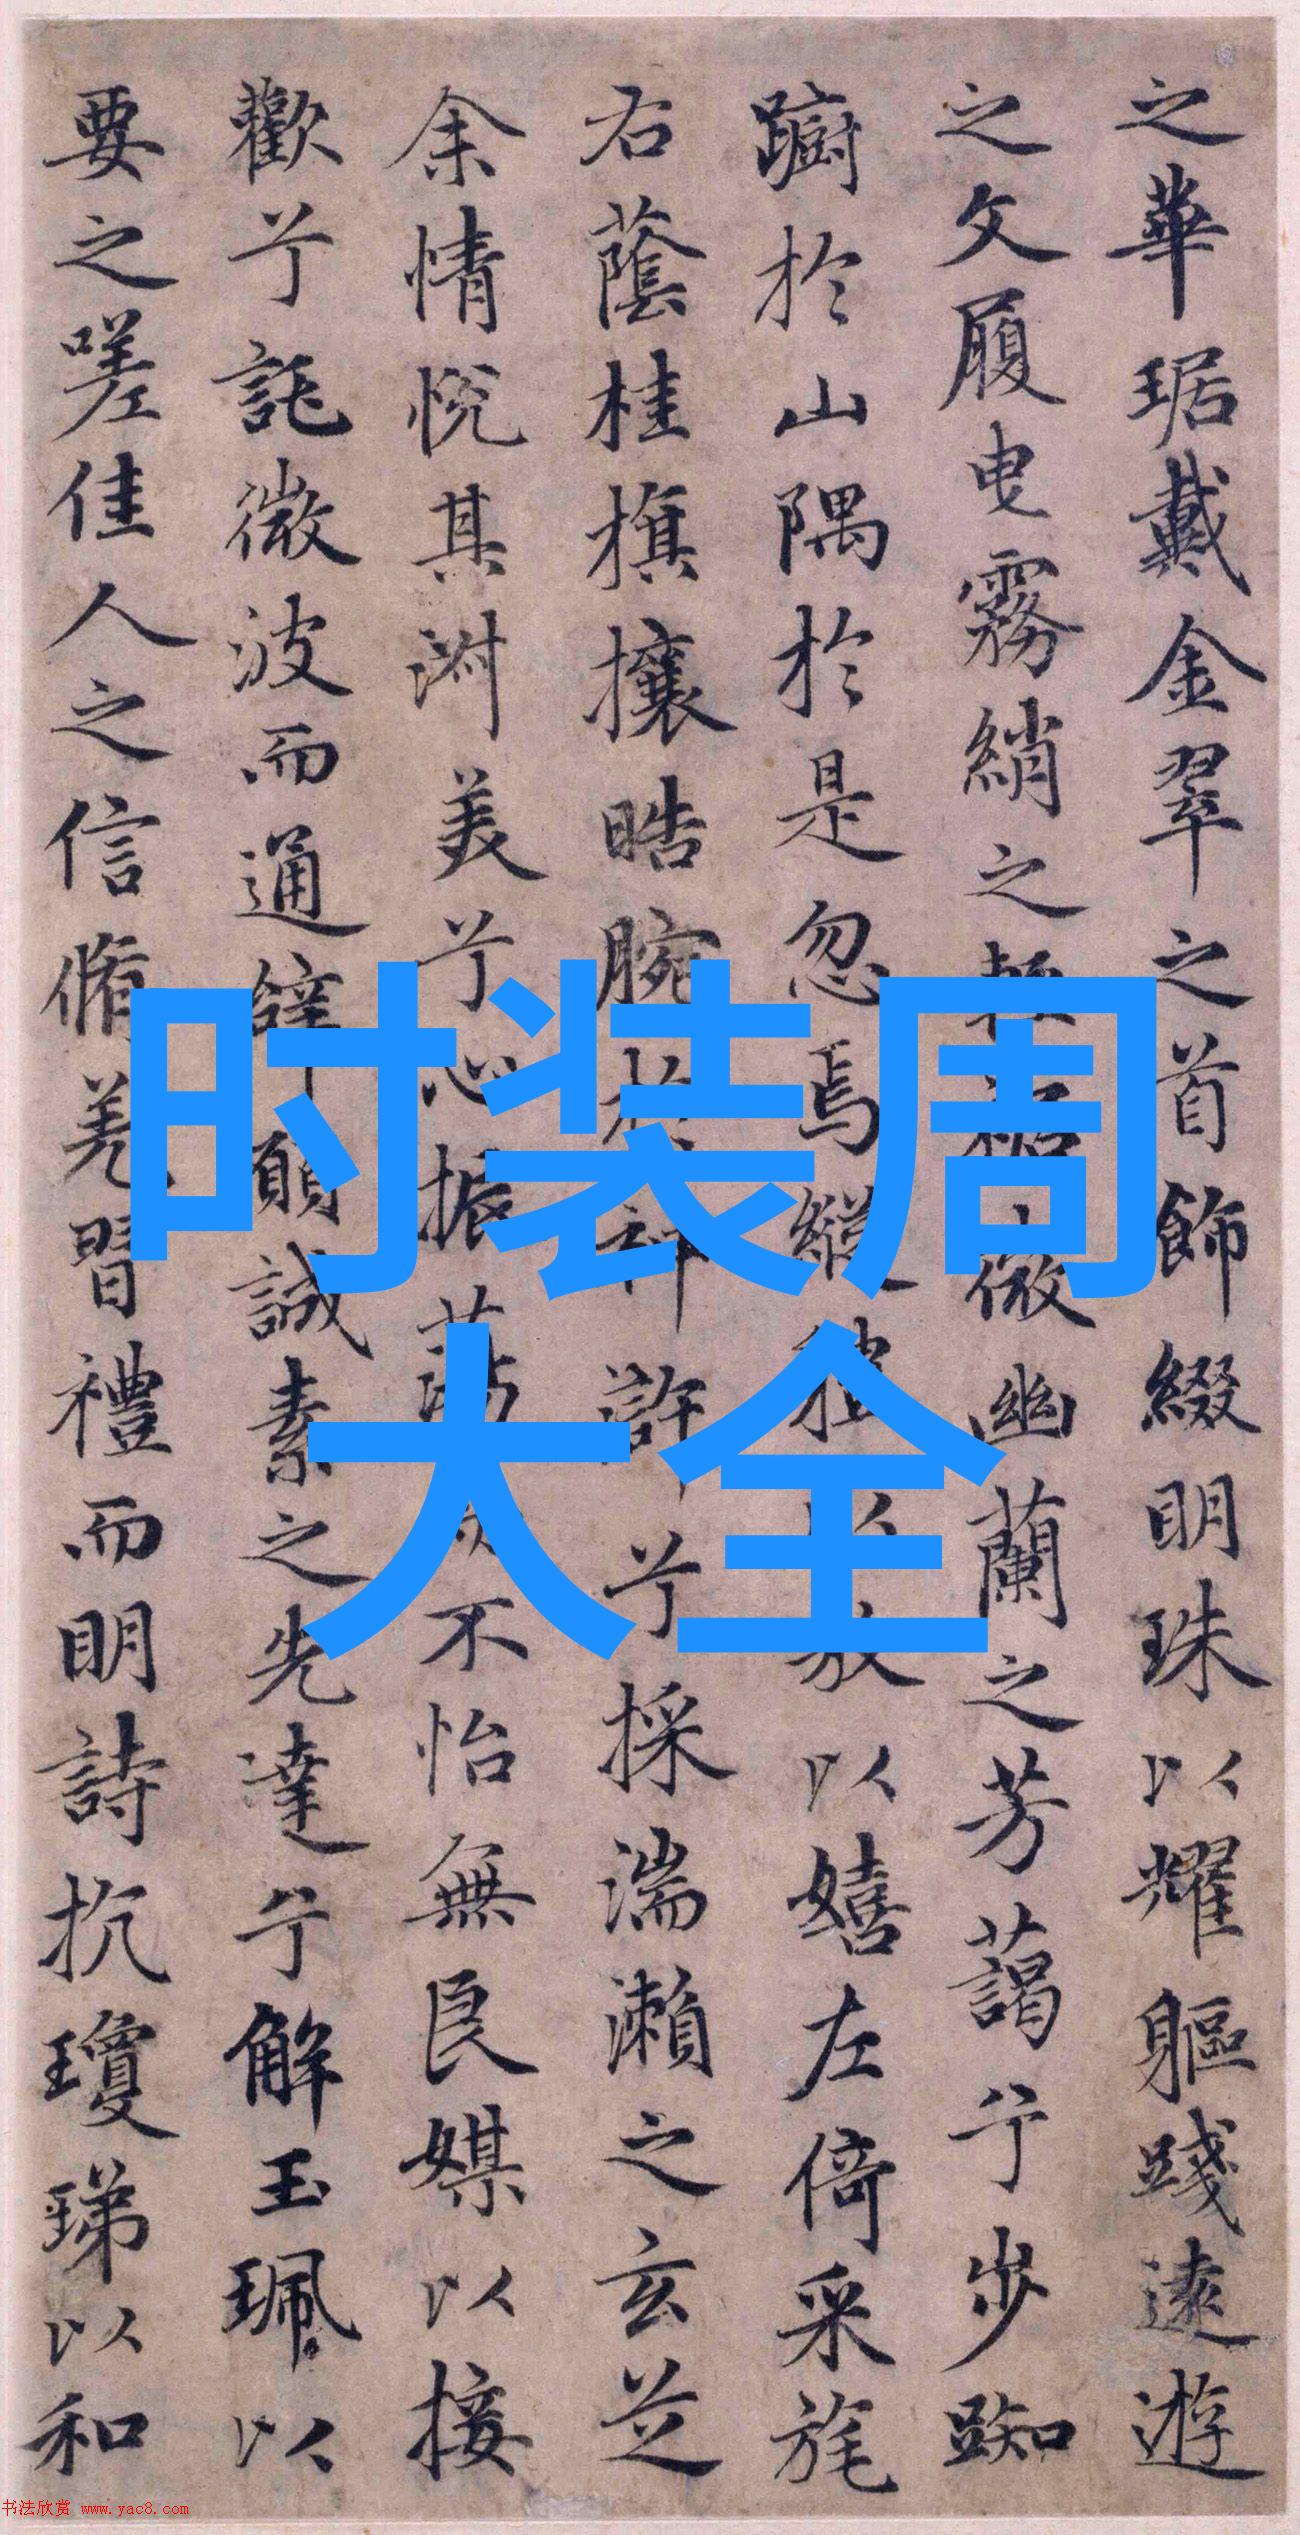 之華琚戴金翠之首飾綴明珠以耀軀踐遠遊
之文履曳霧綃之輕裾微幽蘭之芳藹兮步踟
躕於山隅於是忽焉縱體以敖以嬉左倚采旄
右蔭桂旗攘皓腕於神滸兮採湍瀨之玄芝
余情悅其淑美兮心振蕩而不怡無良媒以接
歡兮託微波而通辭願誠素之先達兮解玉珮以
要之嗟佳人之信脩羌習禮而明詩抗瓊珶以和
时装周
大全
书法欣赏 www.yac8.com